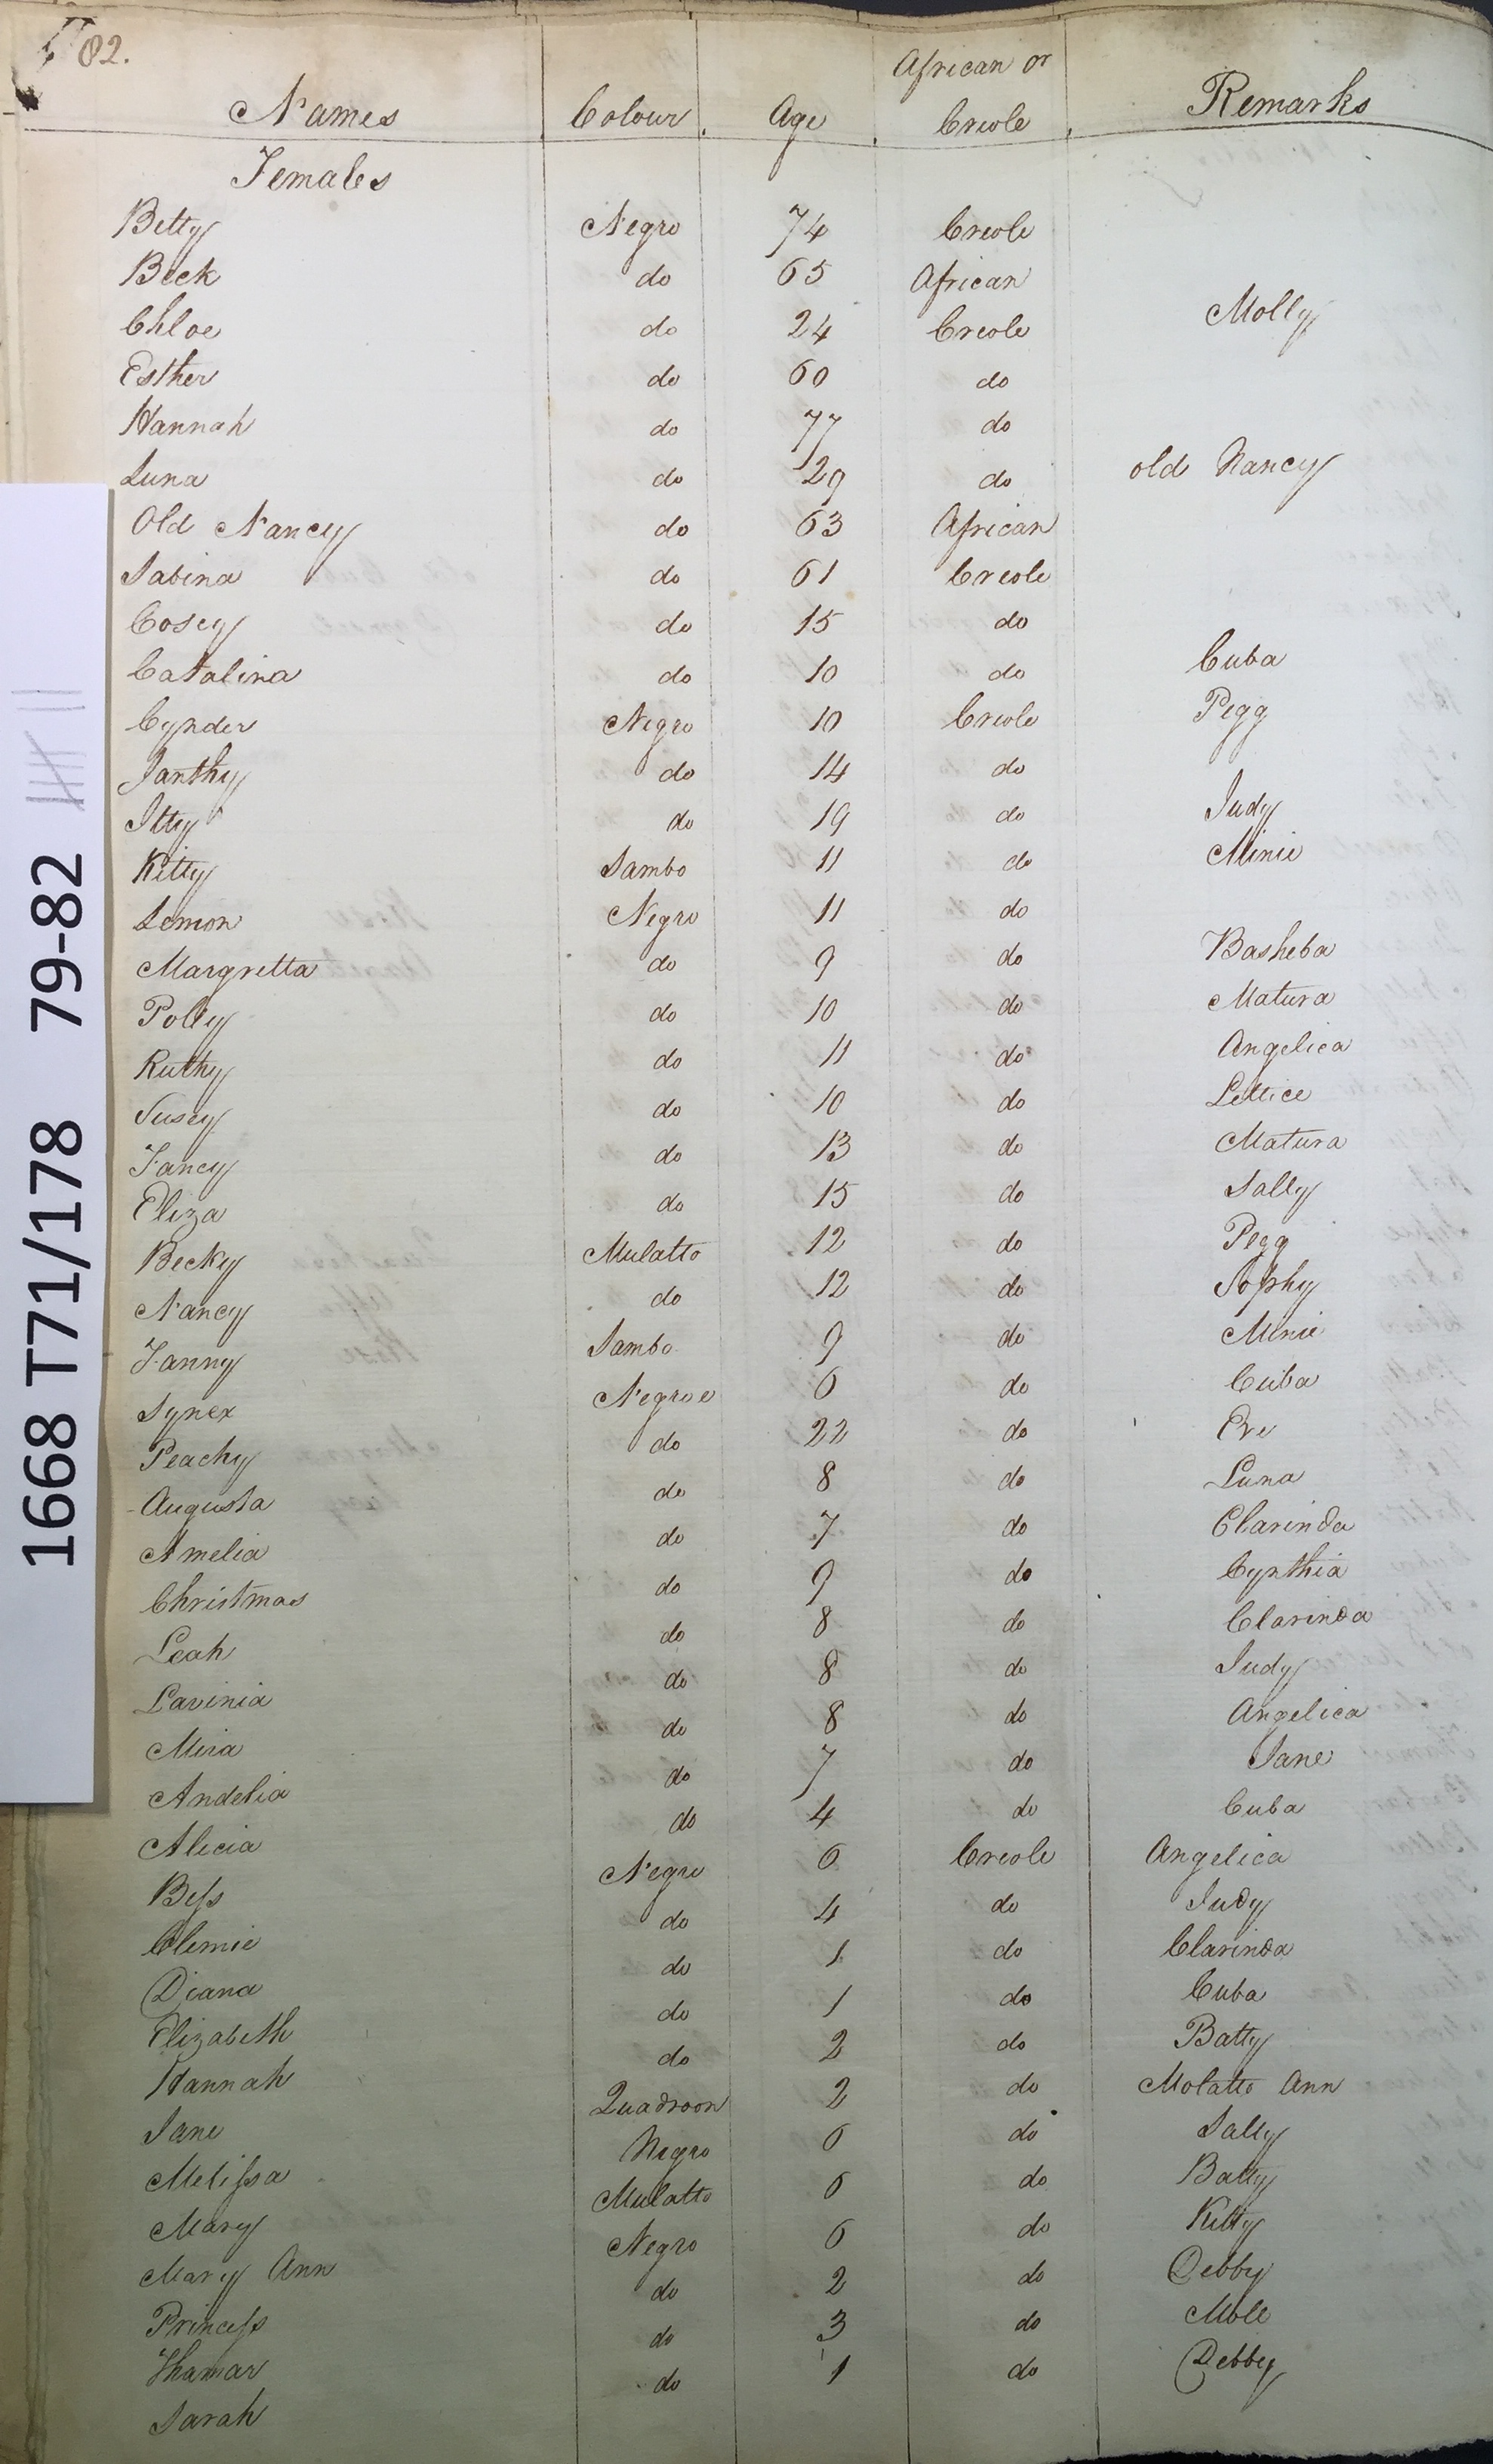 82.
Names Colour Age African or Creole Remarks
Females
Betty Negro 74 Creole
Beck do 65 African
Chloe do 24 Creole Molly
Esther do 60 do
Hannah do 77 do
Luna do 29 do old Nancy
Old Nancy do 63 African
Sabina do 61 Creole
Cosey do 15 do
Catalina do 10 do Cuba
Cynder Negro 10 Creole Pegg
Janthy do 14 do
Itty do 19 do Judy
Kitty Sambo 11 do Minie
Lemon Negro 11 do
Margretta do 9 do Basheba
Polly do 10 do Matura
Ruthy do 11 do Angelica
Susey do 10 do Lettice
Fancy do 13 do Matura
Eliza do 15 do Sally
Becky Mulatto 12 do Pegg
Nancy do 12 do Sophy
Fanny Sambo 9 do Minie
Synex Negroe 6 do Cuba
Peachy do 22 do Eve
Augusta do 8 do Luna
Amelia do 7 do Clarinda
Christmas do 9 do Cynthia
Leah do 8 do Clarinda
Lavinia do 8 do Judy
Mira do 8 do Angelica
Andelia do 7 do Jane
Alicia do 4 do Cuba
Bess Negro 6 Creole Angelica
Clemie do 4 do Judy
Diana do 1 do Clarinda
Elizabeth do 1 do Cuba
Hannah do 2 do Batty
Jane Quadroon 2 do Molatto Ann
Melissa Negro 6 do Sally
Mary Mulatto 6 do Batty
Mary Ann Negro 6 do Kitty
Princess do 2 do Debby
Thamar do 3 do Moll
Sarah do 1 do Debby
1668 T71/178 79-82